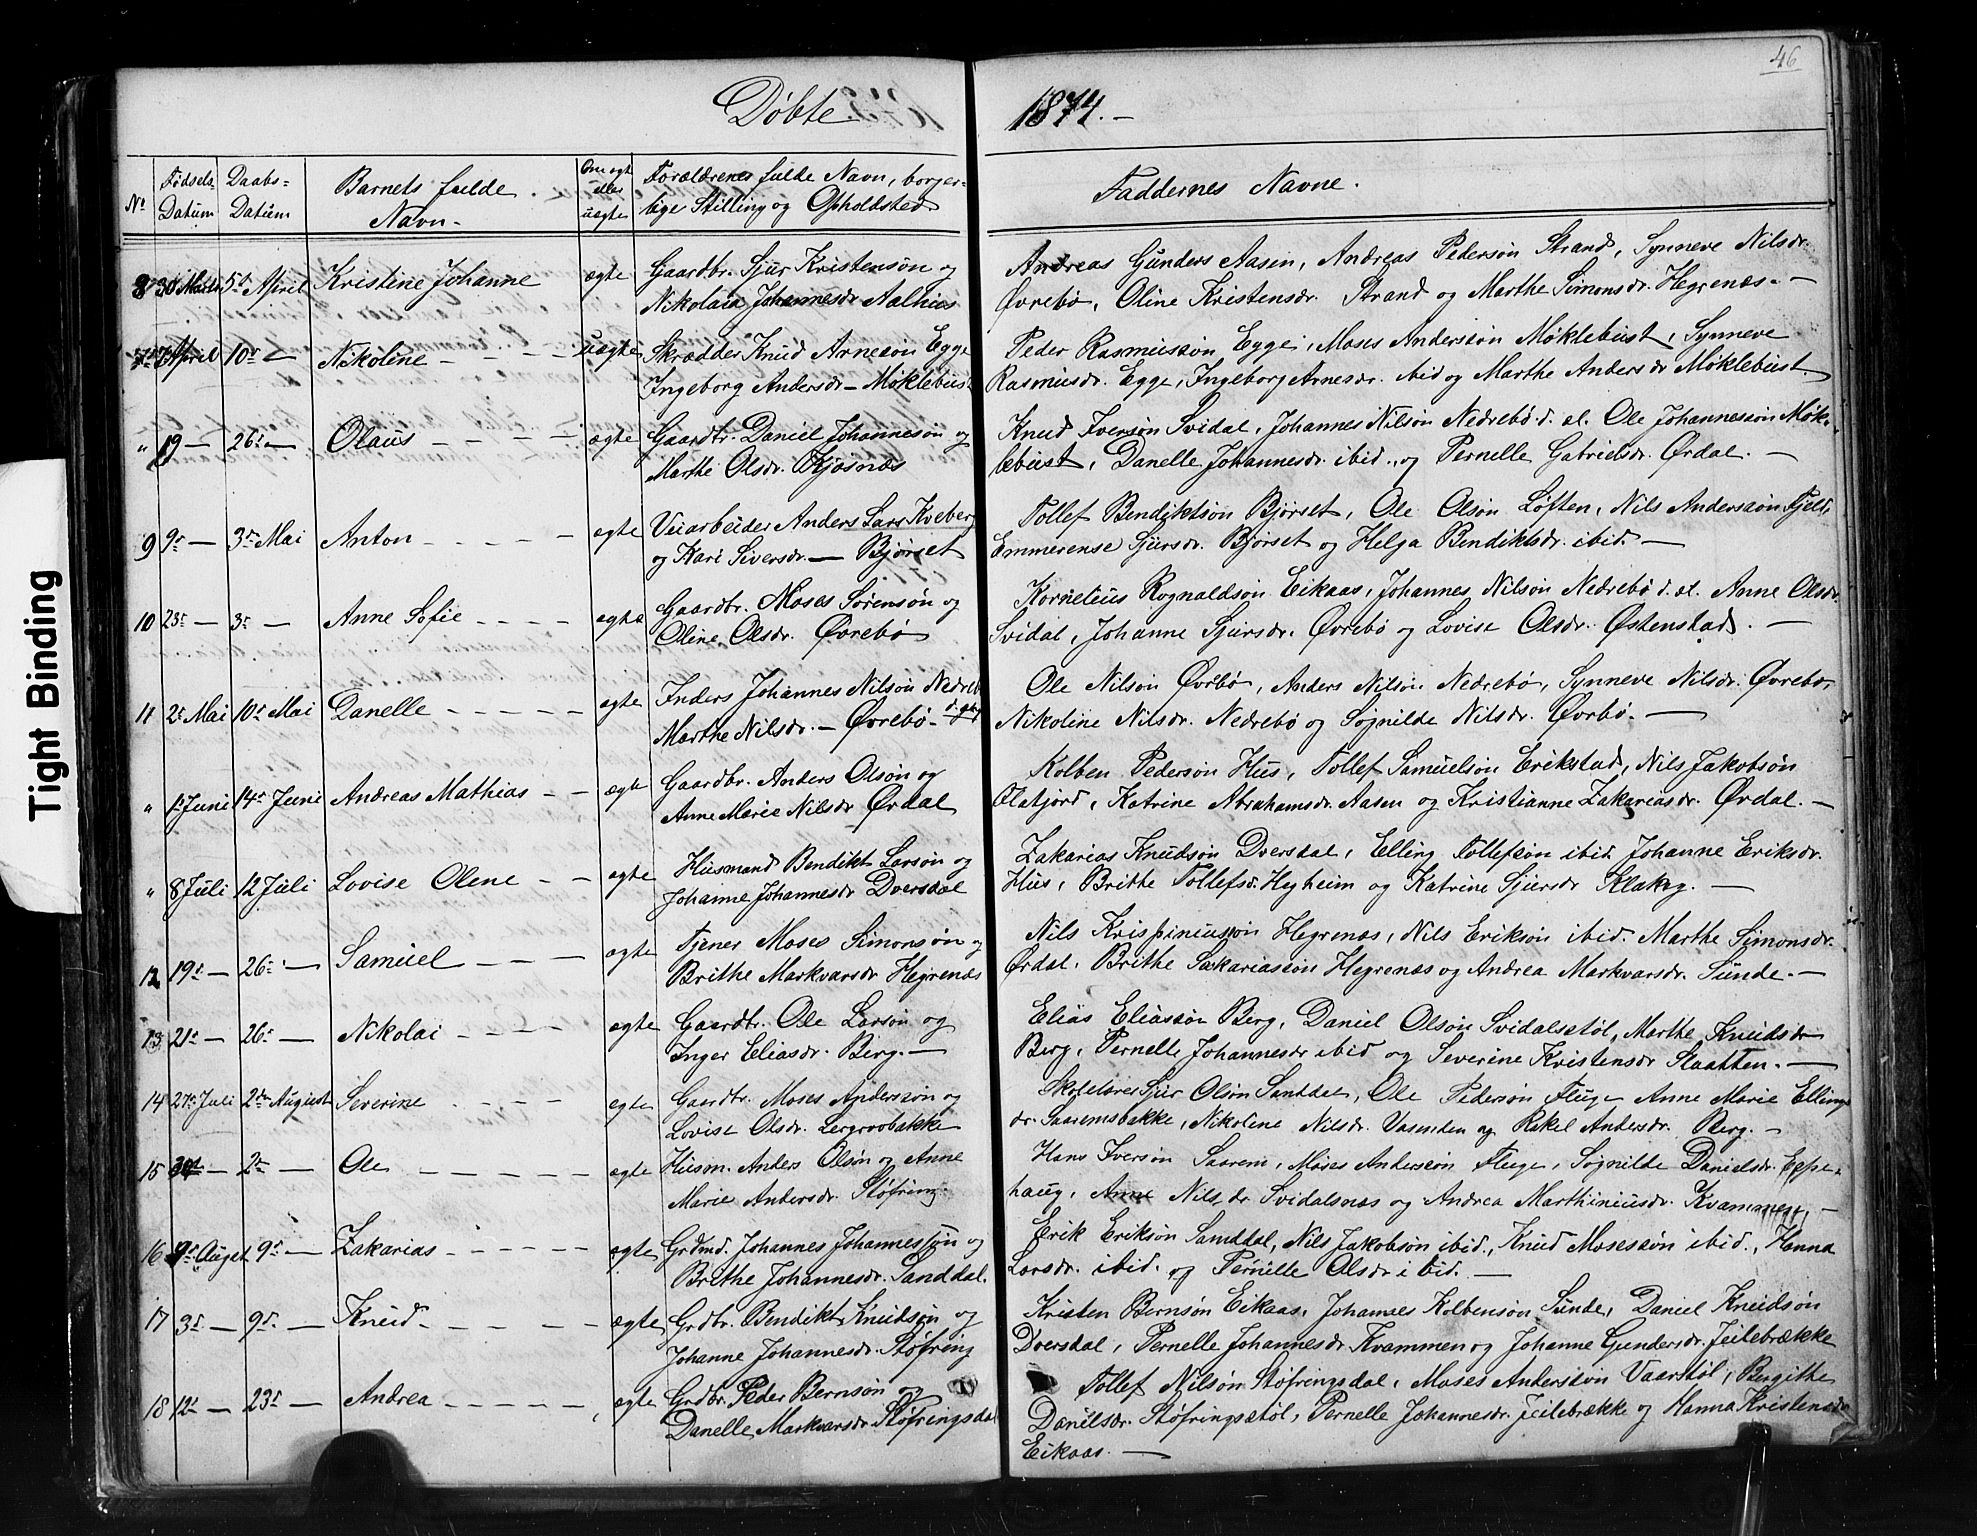 46
Døbte
1874. -
No
Fødsels-
Datum
Daabs-
Datum
Barnets fulde
Navn -
Om egte
eller
uegte
Forældrenes fulde Navn, borger-
lige Stilling og Opholdsted
Faddernes Navne.
8 30 Marts 5t April Kristine Johanne ægte Gaardbr. Sjur Kristensøn og
Nikolaia Johannesdr Aalhus
Andreas Gunders Aasen, Andreas Pedersøn Strand, Synneve Nilsdr.
Øvrebø, Oline Kristensdr. Strand og Marthe Simonsdr. Hegrenæs. -
April 10d - Nikoline - - - - uægte Skrædder Knud Arnesøn Egge
Ingeborg Andersdr - Møklebust
Peder Rasmussøn Egge, Moses Anderssøn Møklebust, Synneve
Rasmusdr. Egge, Ingeborg Arnesdr. ibid og Marthe Andersdr Møklebust.
" 19 - 26d - Olaus - - - - ægte Gaardbr. Daniel Johannesøn og
Marthe Olsdr. Kjøsnæs
Knud Iversøn Svidal, Johannes Nilsøn Nedrebø d. æl. Ole Johannessøn Møk-
lebust, Danelle Johannesdr. ibid., og Pernelle Gabrielsdr. Ørdal. -
9 9d - 3d Mai Anton - - - - - ægte Veiarbeider Anders Lars Kveberg
og Kari Siversdr. - Bjørset
Tollef Bendiktsøn Bjørset, Ole Olsøn Løften, Nils Anderssøn Fjeld,
Emmerense Sjursdr. Bjørset og Helga Bendiktsdr. ibid. -
10 23d - 3d - Anne Sofie - - - - ægte Gaardbr. Moses Sørensøn og
Oline Olsdr. Øvrebø
Kornelius Rognaldsøn Eikaas, Johannes Nilsøn Nedrebø d. æl. Anne Olsdr.
Svidal, Johanne Sjursdr. Øvrebø og Lovise Olsdr. Østenstad. -
11 2d Mai 10d Mai Danelle - - - - - ægte Inders Johannes Nilsøn Nedrebø
Marthe Nilsdr. - Øvrebø -
Ole Nilsøn Øvrbø, Anders Nilsøn Nedrebø, Synneve Nilsdr. Øvrebø,
Nikoline Nilsdr. Nedrebø og Søgnilde Nilsdr. Øvrbø. -
" 1d Juni 14d Juni Andreas Mathias - - ægte Gaardbr. Anders Olsøn og
Anne Marie Nilsdr Ørdal
Kolben Pedersøn Hus, Tollef Samuelsøn Erikstad, Nils Jakobsøn
Olafjord, Katrine Abrahamsdr. Aasen og Kristianne Zakariasdr. Ørdal. -
" 8 Juli 12 Juli Lovise Olene - - ægte Husmand Bendikt Larsøn og
Johanne Johannesdr Dversdal
Zakarias Knudsøn Dversdal, Elling Tollefsøn ibid Johanne Eriksdr.
Hus, Brithe Tollefsd. Hegheim og Katrine Sjursdr Klakeg. -
12 19d - 26d - Samuel - - - - ægte Tjener Moses Simonsøn og
Brithe Markvarsdr Hegrenæs
Nils Krispiniussøn Hegrenæs, Nils Eriksøn ibid. Marthe Simonsdr.
Ørdal, Brithe Sakariassøn Hegrenæs og Andrea Markvarsdr. Sunde. -
13 21d - 26d - Nikolai - - - - ægte Gaardbr. Ole Larsøn og
Inger Eliasdr. Berg. -
Elias Eliassøn Berg, Daniel Olsøn Svidalsstøl, Marthe Knudsdr
Berg, Pernelle Johannesdr ibid og Severine Kristensdr Slaatten. -
14 27d Juli 2den August Severine - - - - ægte Gaardbr. Moses Anderssøn og
Lovise Olsdr. Lergrovbakke
Skolelærer Sjur Olsøn Sanddal, Ole Pedersøn Fluge Anne Marie Ellings
dr. Saaremsbakke, Nikoline Nilsdr. Vasenden og Rakel Andersdr. Berg. -
15 - 2d - Ole - - - - - ægte Husm. Anders Olsøn og Anne
Marie Andersdr. Støfring.
Hans Iversøn Saarem, Moses Anderssøn Fluge, Søgnilde Danielsdr. Eppe-
haug, Anne Nilsdr Svidalsnæs og Andrea Marthiniusdr. Kvammen, -
16 9d Augst 9d - Zakarias - - - - - ægte Grdmd. Johannes Johannessøn og
Brithe Johannesdr. Sanddal.
Erik Eriksøn Sanddal, Nils Jakobsøn ibid., Knud Mosessøn ibid., Hanna
Larsdr. ibid. og Pernille Olsdr ibid. -
17 3d - 9d. - Knud - - - - - - ægte Grdbr. Bendikt Knudsøn og
Johanne Johannesdr. Støfring
Kristen Bernsøn Eikaas, Johannes Kolbensøn Sunde, Daniel Knudsøn
Dversdal, Pernelle Johannesdr Kvammen og Johanne Gundersdr. Feilebrække
18 12d - 23d - Andrea - - - - - ægte Grdbr. Peder Bernsøn og
Danelle Markvarsdr Støfringsdal
Tollef Nilsøn Støfringsdal, Moses Anderssøn Vaarstøl, Bergithe
Danilsdr. Støfringsstøl, Pernelle Johannesdr. Feilebrække og Hanna Kristensdr
Eikaas. -
Tight Binding